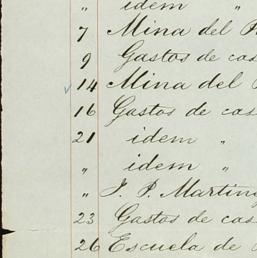 " idem "
7 Mina del
9 Gastos de cas
14 Mina del
16 Gastos de cas
21 idem "
" idem "
" J. P. Martin
23 Gastos de cas
26 Escuela de